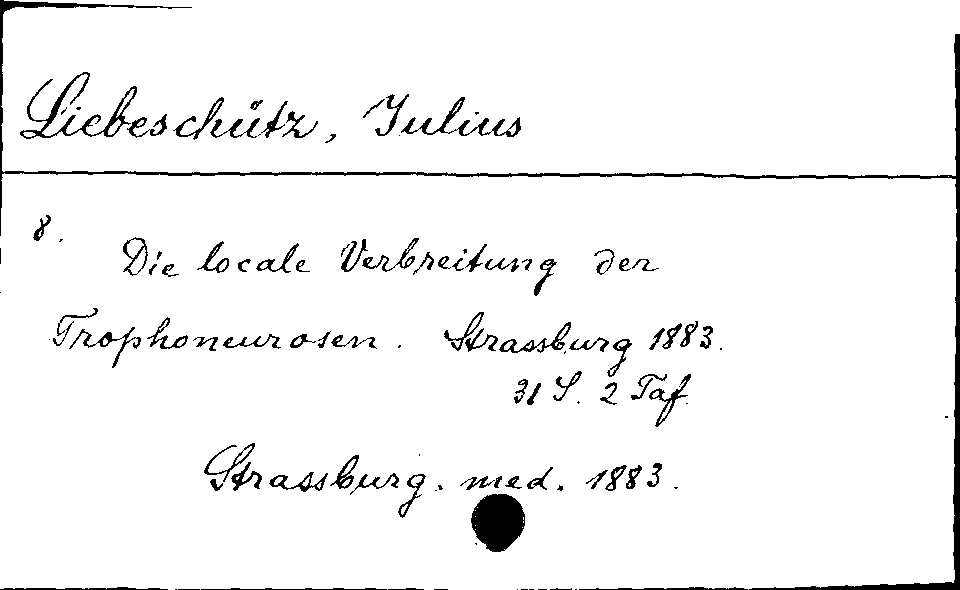 Liebeschütz, Julius
8.
Die locale Verbreitung der
Trophoneurosen. Strassburg 1883.
31 S. 2 Taf.
Strassburg. med. 1883.